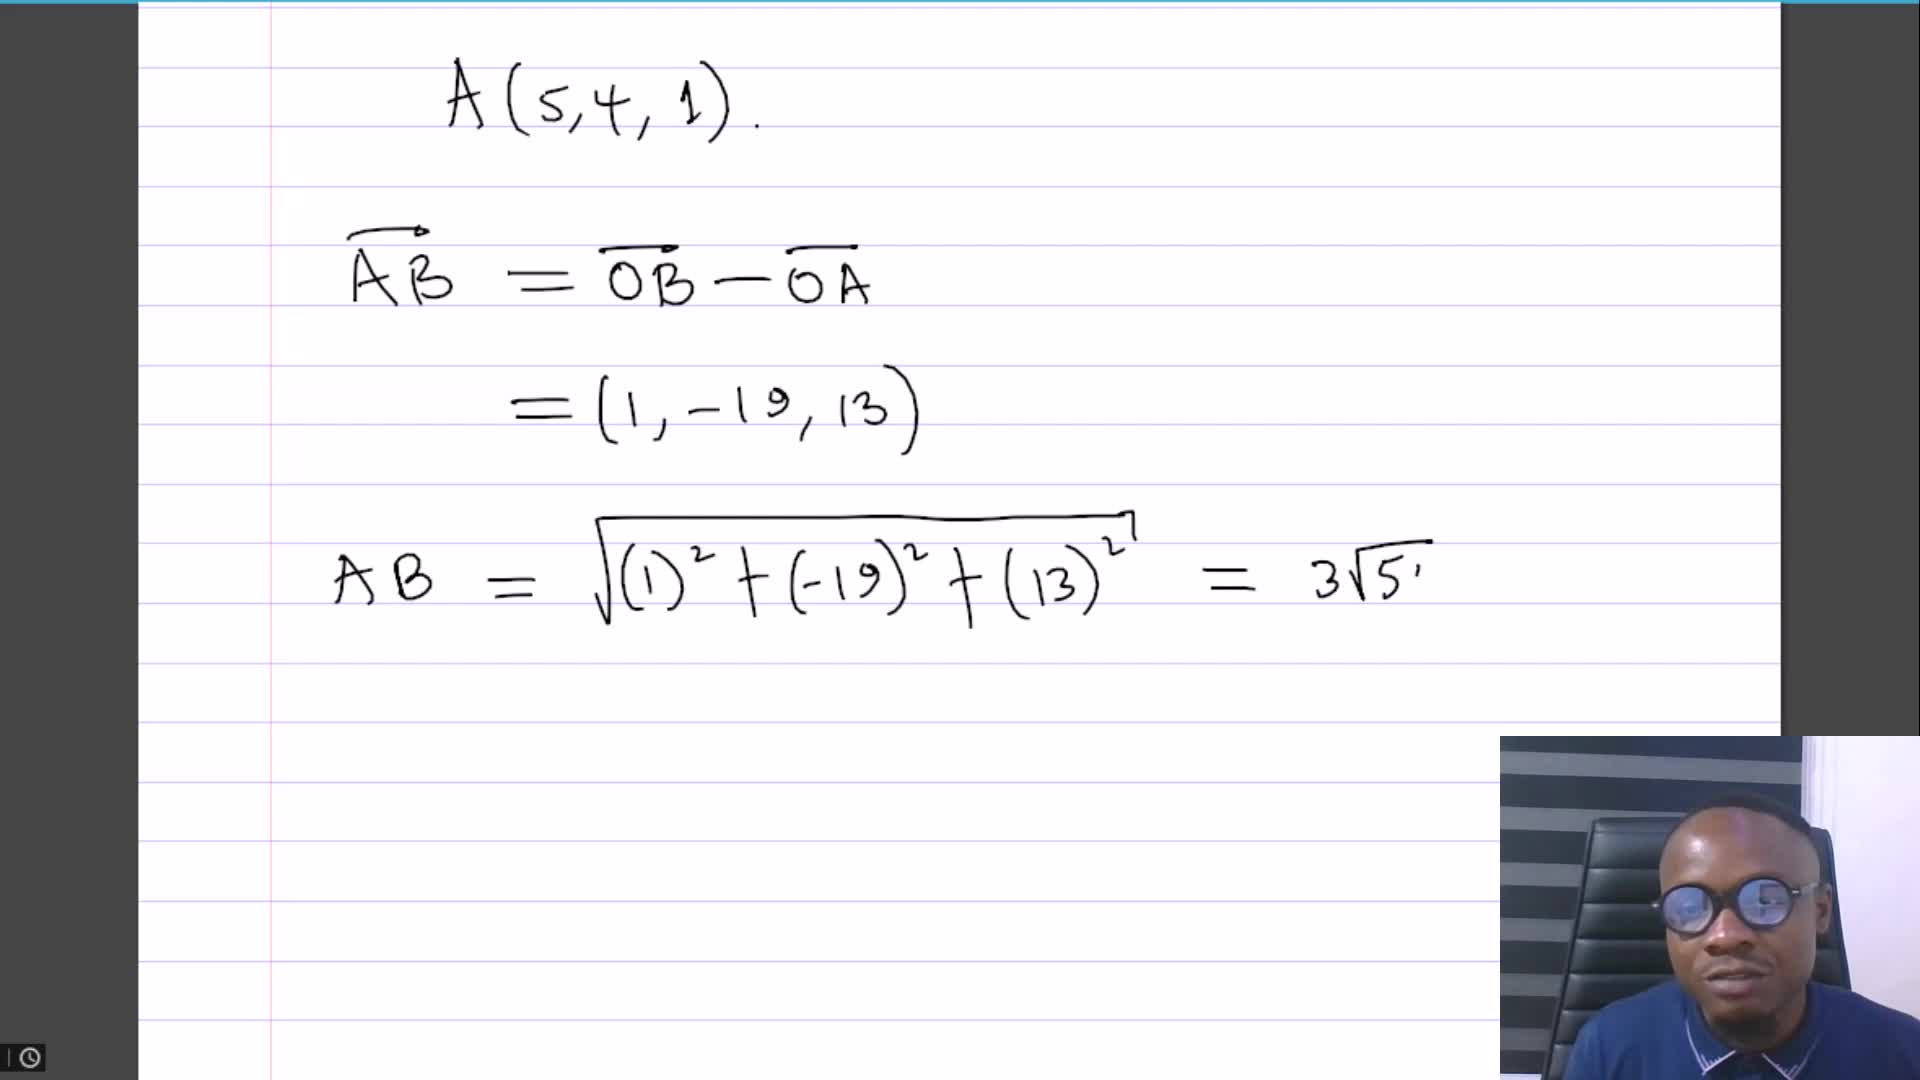 A(5,4,1).
AB = OB − OA
= (1, −19, 13)
AB = √(1)² + (−19)² + (13)² = 3√5